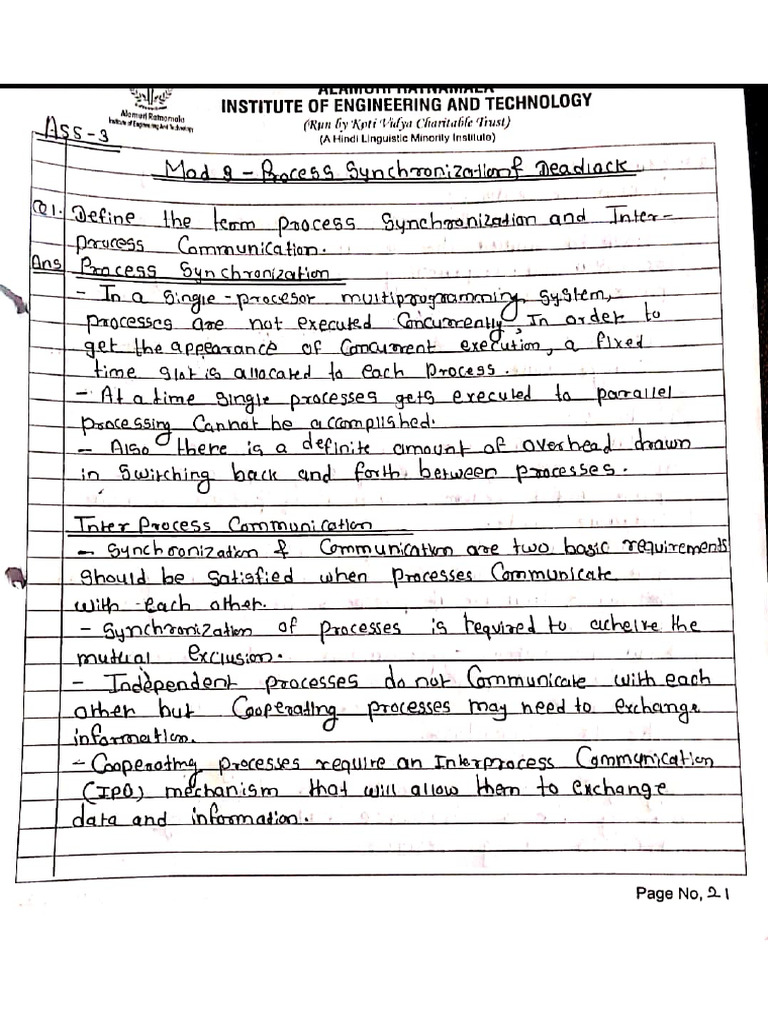 ALAMURI RATNAMALA
INSTITUTE OF ENGINEERING AND TECHNOLOGY
Alamuri Ratnamala
Institute of Engineering And Technology
(Run by Koti Vidya Charitable Trust)
(A Hindi Linguistic Minority Institute)
ASS-3
Process Synchronization & Deadlock
Q1. Define the term process Synchronization and Inter-
process Communication.
Ans Process Synchronization
- In a single-procesor multiprogramming system,
processes are not executed concurrently, In order to
get the appearance of concurrent execution, a fixed
time slot is allocated to each Process.
- At a time single processes gets executed to parallel
processing cannot be accomplished.
- Also there is a definite amount of overhead drawn
in switching back and forth between processes.
Inter Process Communication
- Synchronization & Communication are two basic requirements
should be satisfied when processes communicate
with each other.
- Synchronization of processes is required to acheive the
mutual exclusion.
- Independent processes do not communicate with each
other but Cooperating processes may need to exchange
information.
- Cooperating processes require an Interprocess Communication
(IPC) mechanism that will allow them to exchange
data and information.
Page No, 21